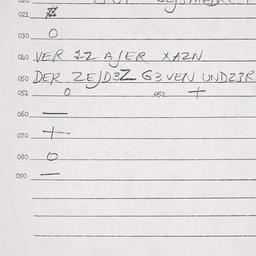 021 Z
030 O
040 VER 1Z AJER XAZN
050 DER ZEJD3Z G3VEN UNDZ3R
051 O 052 +
060 —
070 +
080 O
090 —